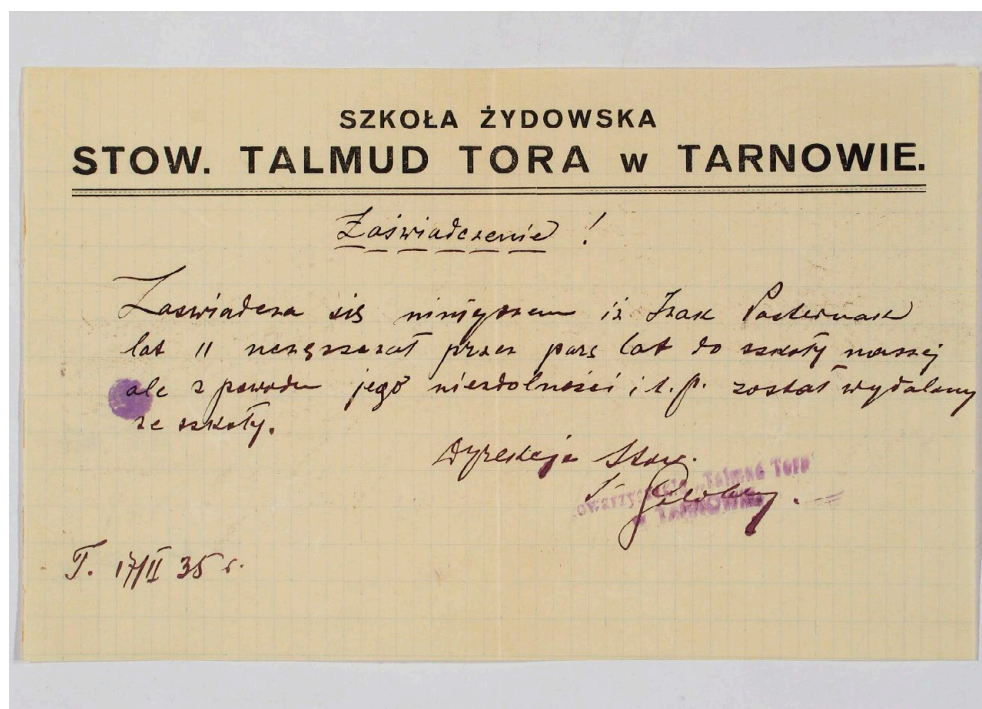 SZKOŁA ŻYDOWSKA
STOW. TALMUD TORA w TARNOWIE.
Zaświadczenie !
Zaswiadcza się niniejszem iż Izak Pasternak
lat 11 uczęszczał przez parę lat do szkoły naszej
ale z powodu jego niezdolności i t. p. został wydalony
ze szkoły.
Dyrekcja Stow.
Talmud Tora
w
T. 17/II 35 r.